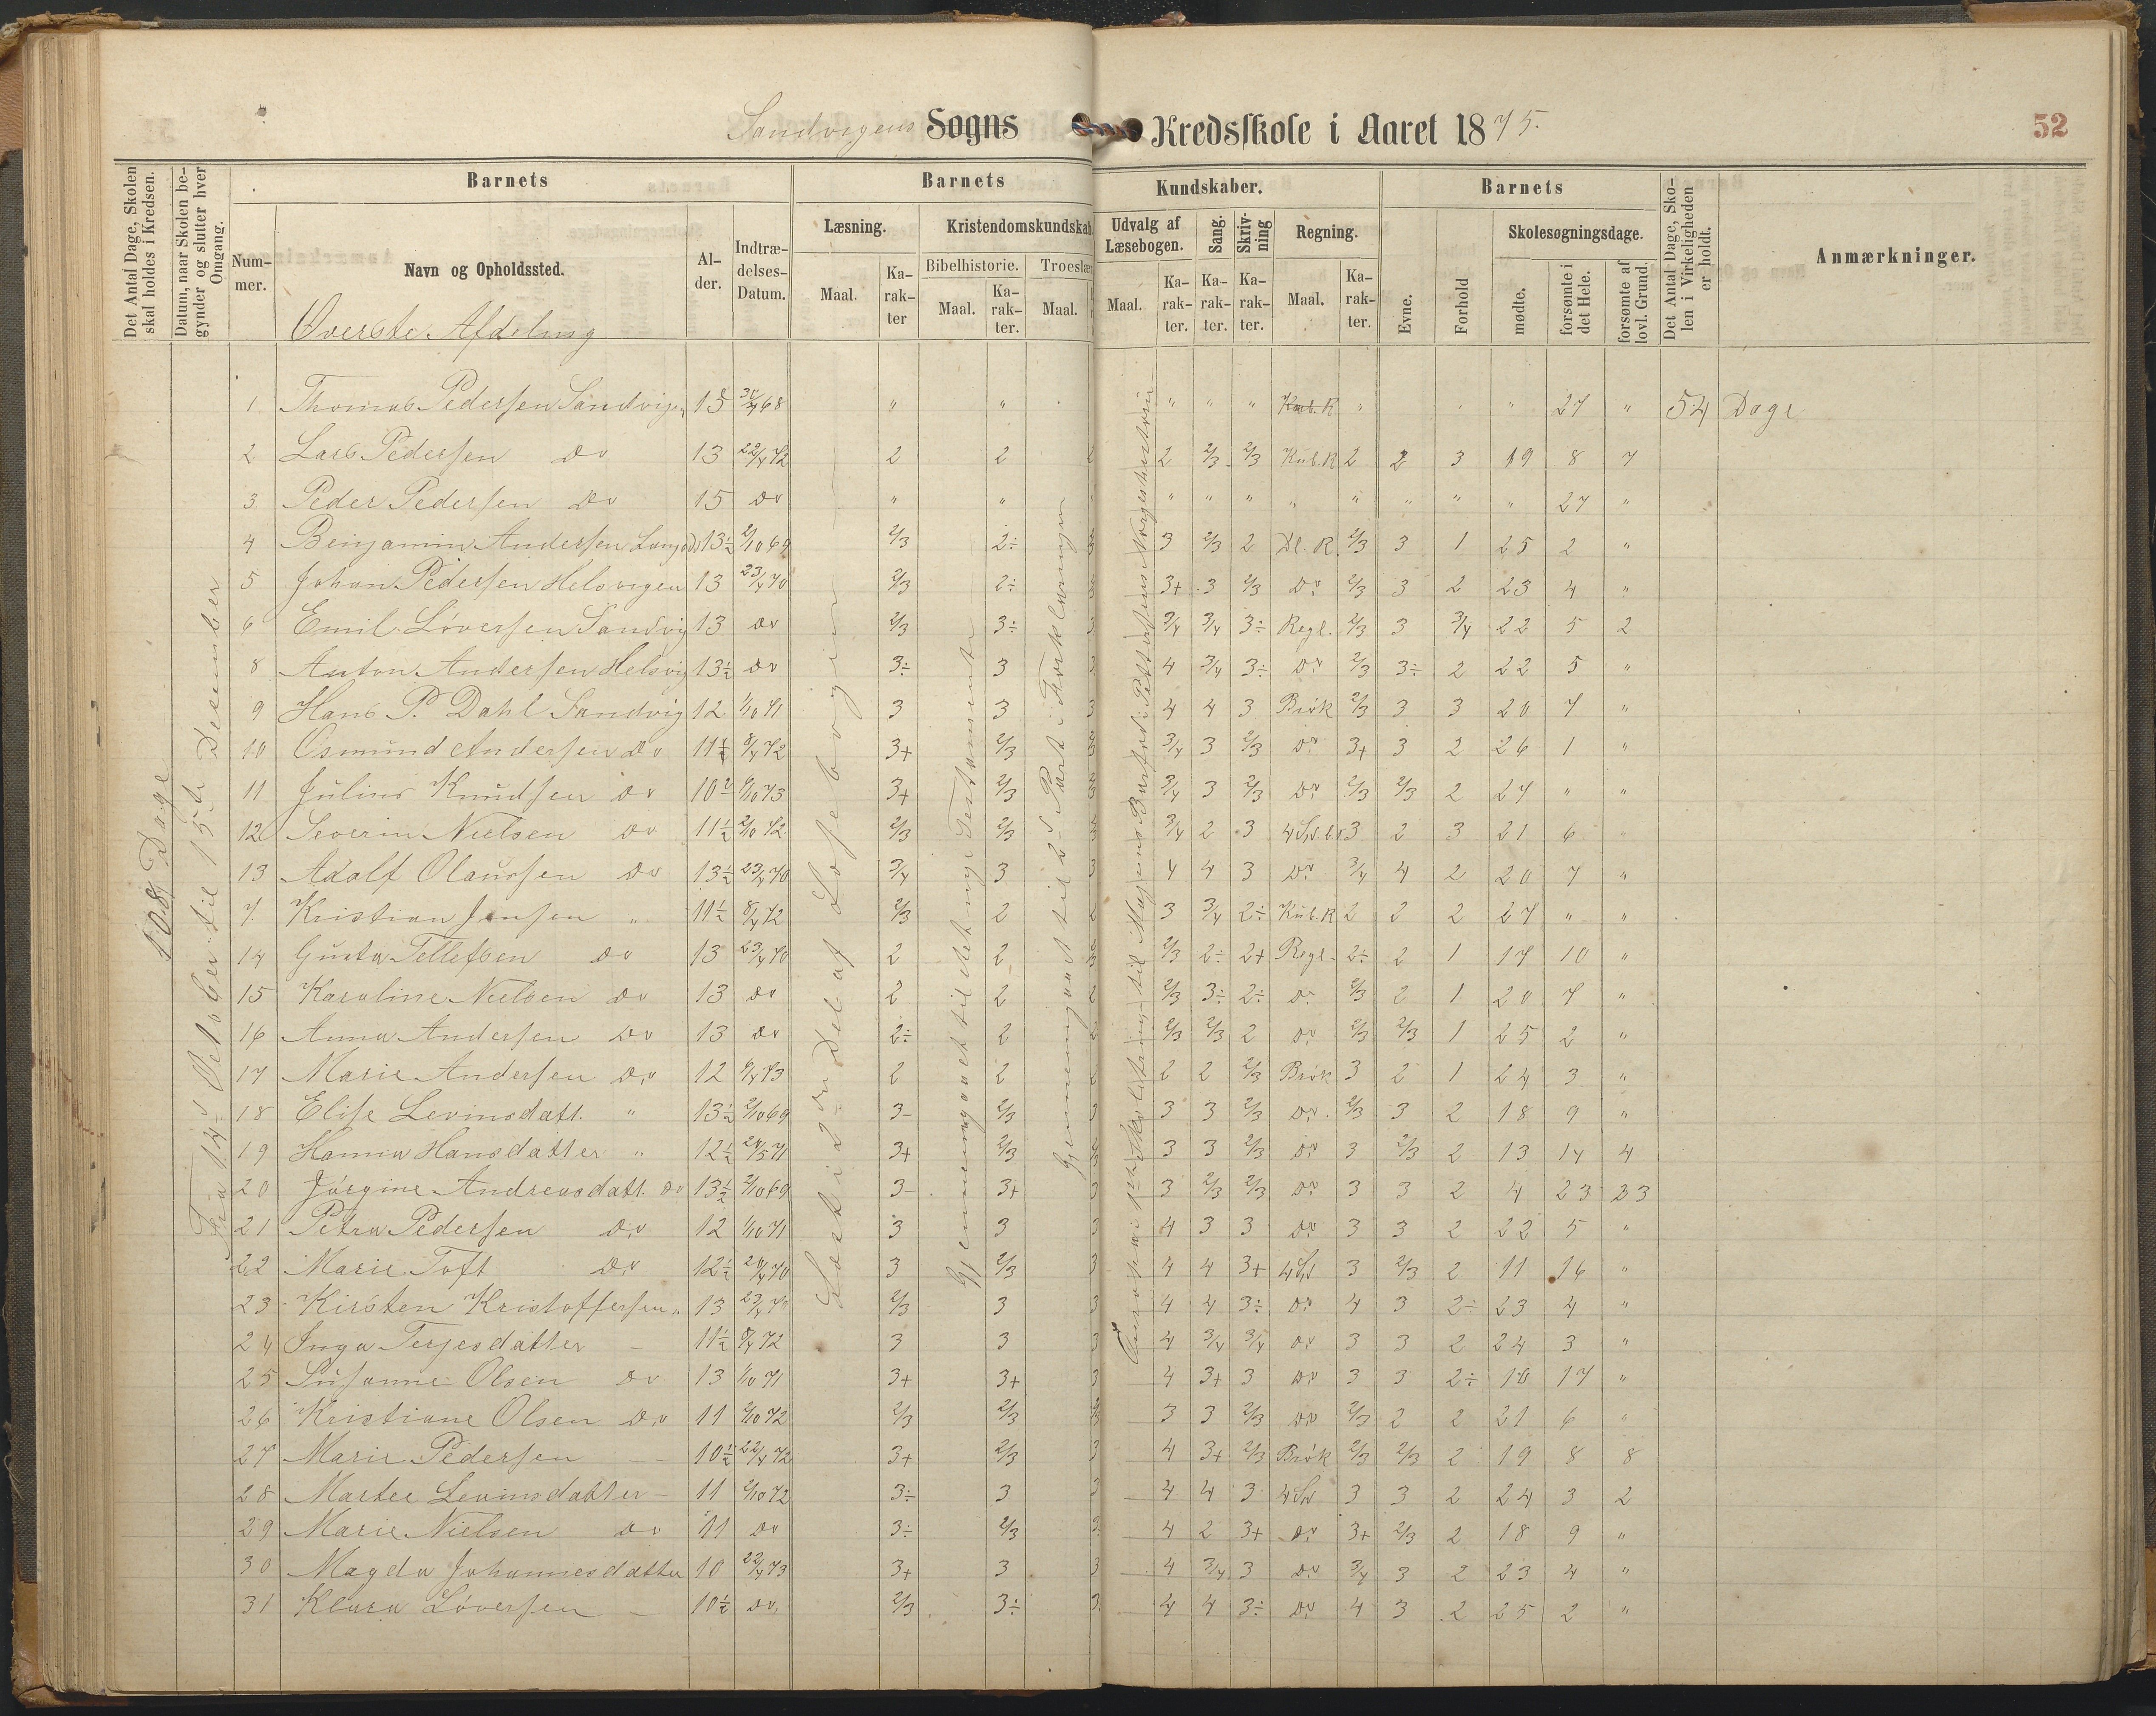 Sandvigens Sogns Kredsskole i Aaret 1875.
52
Det Antal Dage, Skolen skal holdes i Kredsen.
Datum, naar Skolen begynder og slutter hver Omgang.
Barnets
Nummer.
Navn og Opholdssted.
Alder.
Indtrædelses-Datum.
Barnets
Læsning.
Maal.
Karakter
Kristendomskundskab.
Bibelhistorie.
Maal.
Karakter.
Troeslær
Maal.
Kundskaber.
Udvalg af Læsebogen.
Maal.
Karakter.
Sang.
Karakter.
Skrivning
Karakter.
Regning.
Maal.
Karakter.
Barnets
Evne.
Forhold
Skolesøgningsdage.
mødte.
forsømte i det Hele.
forsømte af lovl. Grund.
Det Antal Dage, Skolen i Virkeligheden er holdt.
Anmærkninger.
Øverste Afdeling
108 Dage
Fra 14d Oktober til 15de December
Læst i 2den Del af Læsebogen
Gjennemgaaet til det nye Testamente
Gjennemgaaet til 2d Part i Forklaringen
1 Thomas Pedersen Sandvigen 15 68 " " " " " Kub. R " " " 27 " 54 Dage
2 Lars Pedersen Do 13 22/4 72 2 2 2 2 2/3 2/3 Kub. R 2 2 3 19 8 7
3 Peder Pedersen Do 15 Do " " " " " " " " " " 27 "
4 Benjamin Andersen 13½ 2/10 69 2/3 2÷ 3 2/3 2 Dl. R. 2/3 3 1 25 2 "
5 Johan Pedersen Helsvigen 13 23/4 70 2/3 2÷ 3+ 3 2/3 Do 2/3 3 2 23 4 "
6 Emil Løversen Sandvig 13 Do 2/3 3÷ 3 3/4 3/4 3÷ Regl. 2/3 3 3/4 22 5 2
8 Anton Andersen Helsvig 13½ Do 3÷ 3 3 4 3/4 3÷ Do 2/3 3÷ 2 22 5 "
9 Hans P. Dahl Sandvig 12 1/10 71 3 3 3 4 4 3 Brøk 2/3 3 3 20 7 "
10 Osmund Andersen Do 11½ 8/4 72 3+ 2/3 3/4 3 2/3 Do 3+ 3 2 26 1 "
11 Julius Knudsen Do 10½ 73 3+ 2/3 3/4 3 2/3 Do 2/3 2/3 2 27 " "
12 Severin Nielsen Do 11½ 2/10 72 2/3 2/3 3/4 2 3 3 2 3 21 6 "
13 Adolf Olaussen Do 13½ 23/4 70 3/4 3 3 4 4 3 Do 3/4 4 2 20 7 "
7. Kristian Jensen " 11½ 8/4 72 2/3 2 2 3 3/4 2÷ Kub. R 2 2 2 27 " "
14 Gusta Tellefsen Do 13 23/4 70 2 2 2/3 2÷ 2+ Regl. 2÷ 2 1 17 10 "
15 Karoline Nielsen Do 13 Do 2 2 2 2/3 3÷ 2÷ Do 2/3 2 1 20 7 "
16 Anna Andersen Do 13 Do 2÷ 2 2 2/3 2/3 2 Do 2/3 2/3 1 25 2 "
17 Marie Andersen Do 12 73 2 2 2 2 2 2/3 Brøk 3 2 1 24 3 "
18 Elise Levinsdatt. " 13½ 2/10 69 3- 2/3 3 3 3 2/3 Do. 2/3 3 2 18 9 "
19 Hanna Hansdatter " 12½ 71 3+ 2/3 3 3 2/3 Do 3 2/3 2 13 14 4
20 Jørgine Andreasdatt. Do 13½ 2/10 69 3- 3+ 3 3 2/3 2/3 Do 3 3 2 4 23 23
21 Petra Pedersen Do 12 1/10 71 3 3 3 4 3 3 Do 3 3 2 22 5 "
22 Marie Toft Do 12½ 70 3 2/3 3 4 4 3+ 3 2/3 2 11 16 "
23 Kirsten Kristoffersen " 13 23/4 2/3 3 3 4 4 3÷ Do 4 3 2÷ 23 4 "
24 Inga Terjesdatter - 11½ 8/4 72 3 3 3 4 3/4 3/4 Do 3 3 2 24 3 "
25 Susanne Olsen Do 13 1/10 71 3+ 3+ 3 4 3+ 3 Do 3 3 2÷ 10 17 "
26 Kristiane Olsen Do 11 2/10 72 2/3 2/3 3 3 2/3 Do 2/3 2 2 21 6 "
27 Marie Pedersen - 10½ 22/4 72 3+ 2/3 3 4 3+ 2/3 Brøk 2/3 2/3 2 19 8 8
28 Martee Levinsdatter - 11 2/10 72 3÷ 3 3 4 4 3 3 3 2 24 3 2
29 Marie Nielsen Do 11 Do 3÷ 2/3 3 4 2 3+ Do 3+ 2/3 2 18 9 "
30 Magda Johannesdatter 10 22/4 73 3+ 3 3 4 3/4 3 Do 3/4 3 2 23 4 "
31 Klara Løversen - 10½ Do. 2/3 3÷ 3 4 4 3÷ Do 4 3 2 25 2 "